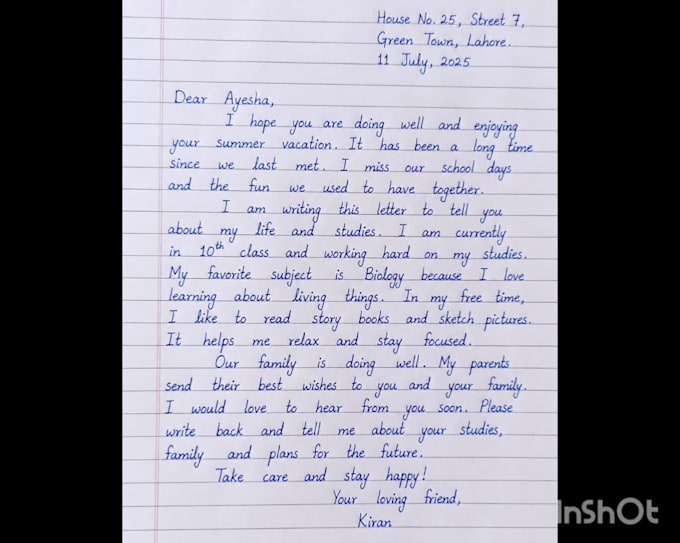 House No. 25, Street 7,
Green Town, Lahore.
11 July, 2025
Dear Ayesha,
I hope you are doing well and enjoying
your summer vacation. It has been a long time
since we last met. I miss our school days
and the fun we used to have together.
I am writing this letter to tell you
about my life and studies. I am currently
in 10th class and working hard on my studies.
My favorite subject is Biology because I love
learning about living things. In my free time,
I like to read story books and sketch pictures.
It helps me relax and stay focused.
Our family is doing well. My parents
send their best wishes to you and your family.
I would love to hear from you soon. Please
write back and tell me about your studies,
family and plans for the future.
Take care and stay happy!
Your loving friend,
Kiran
InShOt